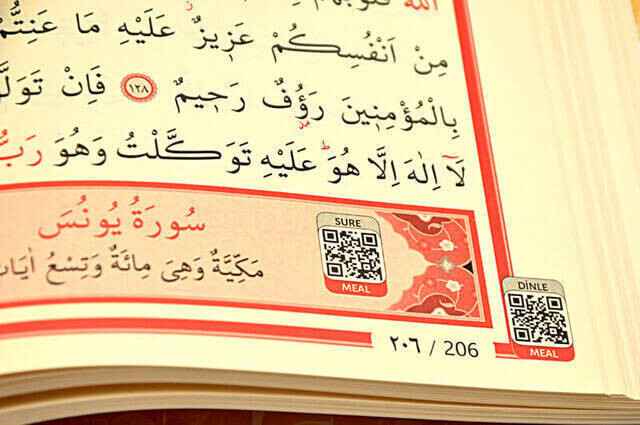 الله قلوبهم
مِنْ اَنْفُسِكُمْ عَزٖيزٌ عَلَيْهِ مَا عَنِتُّمْ
بِالْمُؤْمِنٖينَ رَؤُ۫فٌ رَحٖيمٌ ١٢٨ فَاِنْ تَوَلَّ
لَٓا اِلٰهَ اِلَّا هُوَ عَلَيْهِ تَوَكَّلْتُ وَهُوَ رَبُّ
سُورَةُ يُونُسَ
مَكِّيَّةٌ وَهِىَ مِائَةٌ وَتِسْعُ اٰيَاتٍ
SURE
MEAL
٢٠٦ / 206
DİNLE
MEAL